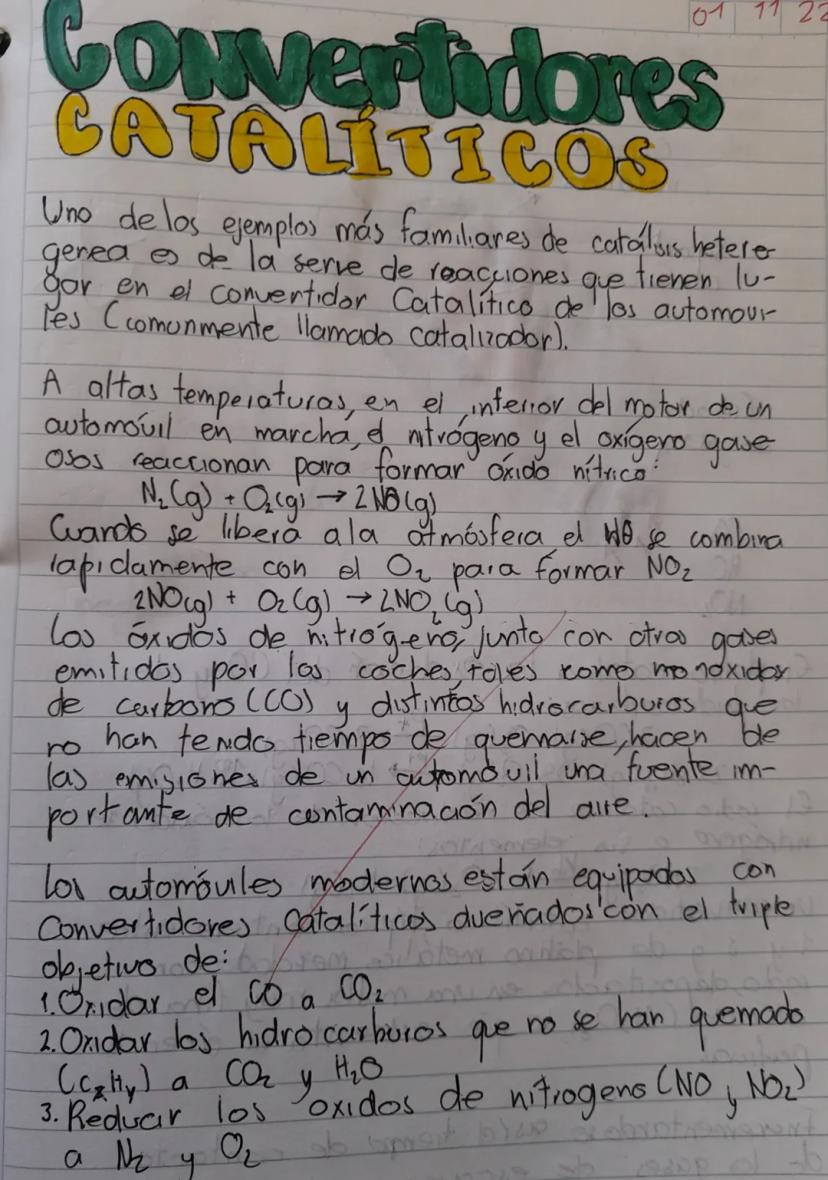 01 11 22
Convertidores
CATALÍTICOS
Uno de los ejemplos más familiares de catálisis hetere-
genea es de la serve de reacciones que tienen lu-
gar en el convertidor Catalítico de los automovi-
les (comunmente llamado catalizador).
A altas temperaturas, en el inferior del motor de un
automóvil en marcha, el nitrógeno y el oxígeno gase
osos reaccionan para formar óxido nítrico:
N₂(g) + O₂(g) → 2NO(g)
Cuando se libera a la atmósfera el NO se combina
rapidamente con el O₂ para formar NO₂
2NO(g) + O₂(g) → 2NO₂(g)
Los óxidos de nitrógeno, junto con otros gases
emitidos por los coches, tales como monóxidos
de carbono (CO) y distintos hidrocarburos que
no han tendo tiempo de quemarse, hacen de
las emisiones de un automóvil una fuente im-
portante de contaminación del aire.
Los automóviles modernos están equipados con
Convertidores Catalíticos dueñados con el triple
objetivo de:
1. Oxidar el CO a CO₂
2. Oxidar los hidrocarburos que no se han quemado
(CₓHᵧ) a CO₂ y H₂O
3. Reducar los oxidos de nitrogeno (NO y NO₂)
a N₂ y O₂